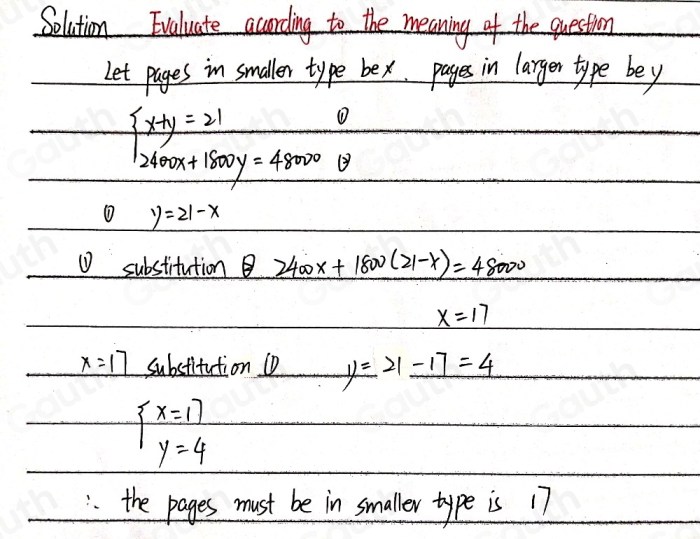 Solution Evaluate acuording to the meaning of the question
Let pages in smaller type be x. pages in larger type be y
{x+y = 21 ①
2400x + 1800y = 48000 ②
① y = 21 - x
① substitution ② 2400x + 1800(21-x) = 48000
x = 17
x = 17 substitution ① y = 21 - 17 = 4
{x = 17
y = 4
∴ the pages must be in smaller type is 17